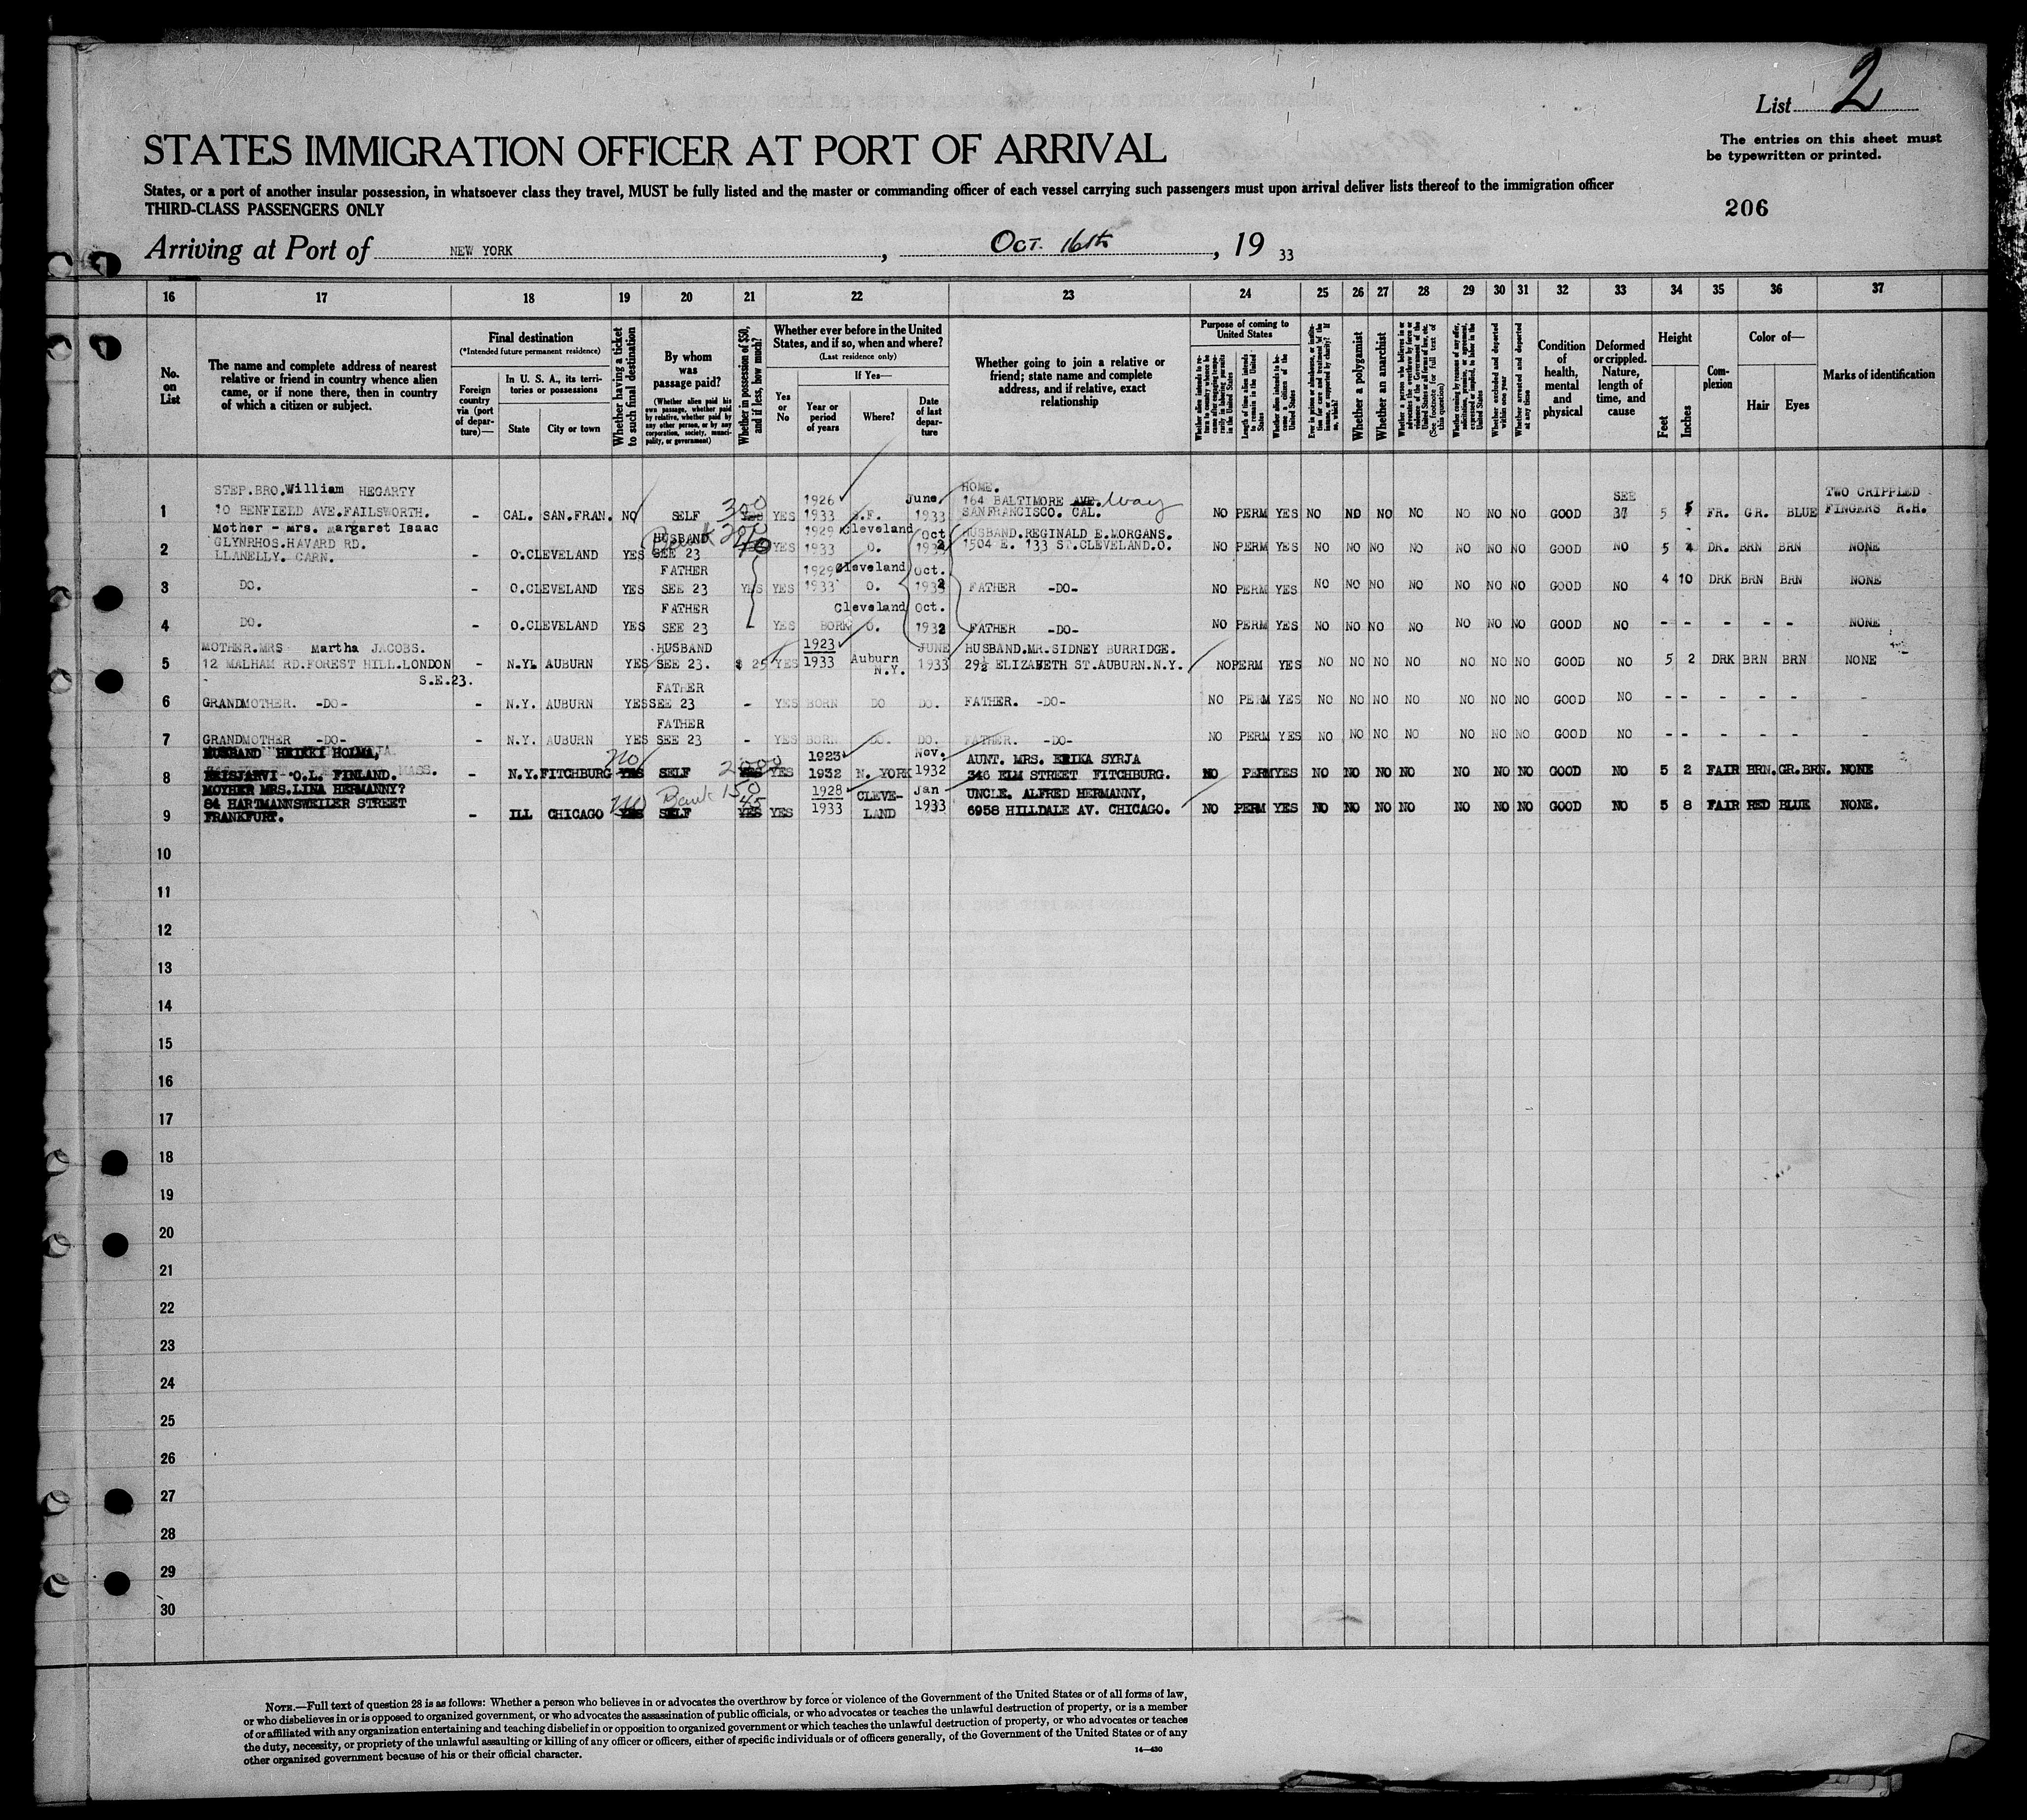 List 2
The entries on this sheet must
be typewritten or printed.
STATES IMMIGRATION OFFICER AT PORT OF ARRIVAL
States, or a port of another insular possession, in whatsoever class they travel, MUST be fully listed and the master or commanding officer of each vessel carrying such passengers must upon arrival deliver lists thereof to the immigration officer
THIRD-CLASS PASSENGERS ONLY
206
Arriving at Port of NEW YORK, OCT. 16th, 19 33
16 17 18 19 20 21 22 23 24 25 26 27 28 29 30 31 32 33 34 35 36 37
No. on List
The name and complete address of nearest
relative or friend in country whence alien
came, or if none there, then in country
of which a citizen or subject.
Final destination
(*Intended future permanent residence)
Foreign country via (port of departure)—
In U. S. A., its territories or possessions
State
City or town
Whether having a ticket to such final destination
By whom was passage paid?
(Whether alien paid his own passage, whether paid by relative, whether paid by any other person, or by any corporation, society, municipality, or government)
Whether in possession of $50, and if less, how much?
Whether ever before in the United
States, and if so, when and where?
(Last residence only)
Yes or No
If Yes—
Year or period of years
Where?
Date of last departure
Whether going to join a relative or
friend; state name and complete
address, and if relative, exact
relationship
Purpose of coming to United States
Length of time alien intends to remain in the United States
Whether alien intends to become a citizen of the United States
Whether a polygamist
Whether an anarchist
Whether excluded and deported within one year
Whether arrested and deported at any time
Condition of health, mental and physical
Deformed or crippled. Nature, length of time, and cause
Height
Feet
Inches
Complexion
Color of—
Hair
Eyes
Marks of identification
STEP.BRO.William HEGARTY HOME. SEE TWO CRIPPLED
1 10 BENFIELD AVE.FAILSWORTH. - CAL. SAN.FRAN. NO SELF 300 YES YES 1926 1933 S.F. June 1933 164 BALTIMORE AVE. Way SANFRANCISCO. CAL. NO PERM YES NO NO NO NO NO NO NO GOOD 37 5 FR. GR. BLUE FINGERS R.H.
Mother - Mrs. Margaret Isaac
2 GLYNRHOS.HAVARD RD. - O.CLEVELAND YES HUSBAND SEE 23 YES 1929 1933 Cleveland O. Oct 1932 HUSBAND.REGINALD E.MORGANS. 1504 E. 133 ST.CLEVELAND.O. NO PERM YES NO NO NO NO NO NO NO GOOD NO 5 4 DR. BRN BRN NONE
LLANELLY. CARN.
3 DO. - O.CLEVELAND YES FATHER SEE 23 YES YES 1929 1933 Cleveland O. Oct. 1932 FATHER -DO- NO PERM YES NO NO NO NO NO NO NO GOOD NO 4 10 DRK BRN BRN NONE
4 DO. - O.CLEVELAND YES FATHER SEE 23 - YES BORN Cleveland O. Oct. 1932 FATHER -DO- NO PERM YES NO NO NO NO NO NO NO GOOD NO - - - - - NONE
MOTHER.MRS Martha JACOBS.
5 12 MALHAM RD.FOREST HILL.LONDON - N.Y. AUBURN YES HUSBAND SEE 23. $ 25 YES 1923 1933 Auburn N.Y. JUNE 1933 HUSBAND.MR.SIDNEY BURRIDGE. 29½ ELIZABETH ST.AUBURN.N.Y. NO PERM YES NO NO NO NO NO NO NO GOOD NO 5 2 DRK BRN BRN NONE
S.E.23.
6 GRANDMOTHER. -DO- - N.Y. AUBURN YES FATHER SEE 23 - YES BORN DO DO. FATHER. -DO- NO PERM YES NO NO NO NO NO NO NO GOOD NO - - - - - -
7 GRANDMOTHER -DO- - N.Y. AUBURN YES FATHER SEE 23 - YES BORN DO. DO. FATHER. -DO- NO PERM YES NO NO NO NO NO NO NO GOOD NO - - - - - -
HUSBAND HEIKKI HOLMA,
8 O.L. FINLAND. - N.Y. FITCHBURG no YES SELF YES YES 1923 1932 N. YORK Nov. 1932 AUNT. MRS. ERIKA SYRJA 346 ELM STREET FITCHBURG. NO PERM YES NO NO NO NO NO NO NO GOOD NO 5 2 FAIR BRN. GR.BRN. NONE
MOTHER MRS.LINA HERMANNY?
9 84 HARTMANNSWEILER STREET - ILL CHICAGO no YES SELF Bank 150 45 YES YES 1928 1933 CLEVE-LAND Jan 1933 UNCLE. ALFRED HERMANNY, 6958 HILLDALE AV. CHICAGO. NO PERM YES NO NO NO NO NO NO NO GOOD NO 5 8 FAIR RED BLUE NONE.
FRANKFURT.
10
11
12
13
14
15
16
17
18
19
20
21
22
23
24
25
26
27
28
29
30
NOTE.—Full text of question 28 is as follows: Whether a person who believes in or advocates the overthrow by force or violence of the Government of the United States or of all forms of law,
or who disbelieves in or is opposed to organized government, or who advocates the assassination of public officials, or who advocates or teaches the unlawful destruction of property, or is a member
of or affiliated with any organization entertaining and teaching disbelief in or opposition to organized government or which teaches the unlawful destruction of property, or who advocates or teaches
the duty, necessity, or propriety of the unlawful assaulting or killing of any officer or officers, either of specific individuals or of officers generally, of the Government of the United States or of any
other organized government because of his or their official character.
14—430